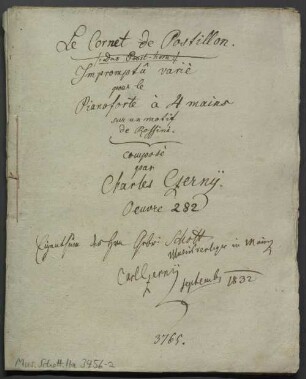 Le Cornet de Postillon.
(Das Post-horn)
Impromptû varié
pour le
Pianoforte à 4 mains
sur un motif
de Rossini.
composé
par
Charles Czernÿ.
Oeuvre 282
Eigenthum des Hrn Gebr: Schott
Musikverleger in Mainz
Carl Czernÿ
September 1832
3765.
Mus. Schott. Ha 3456-2